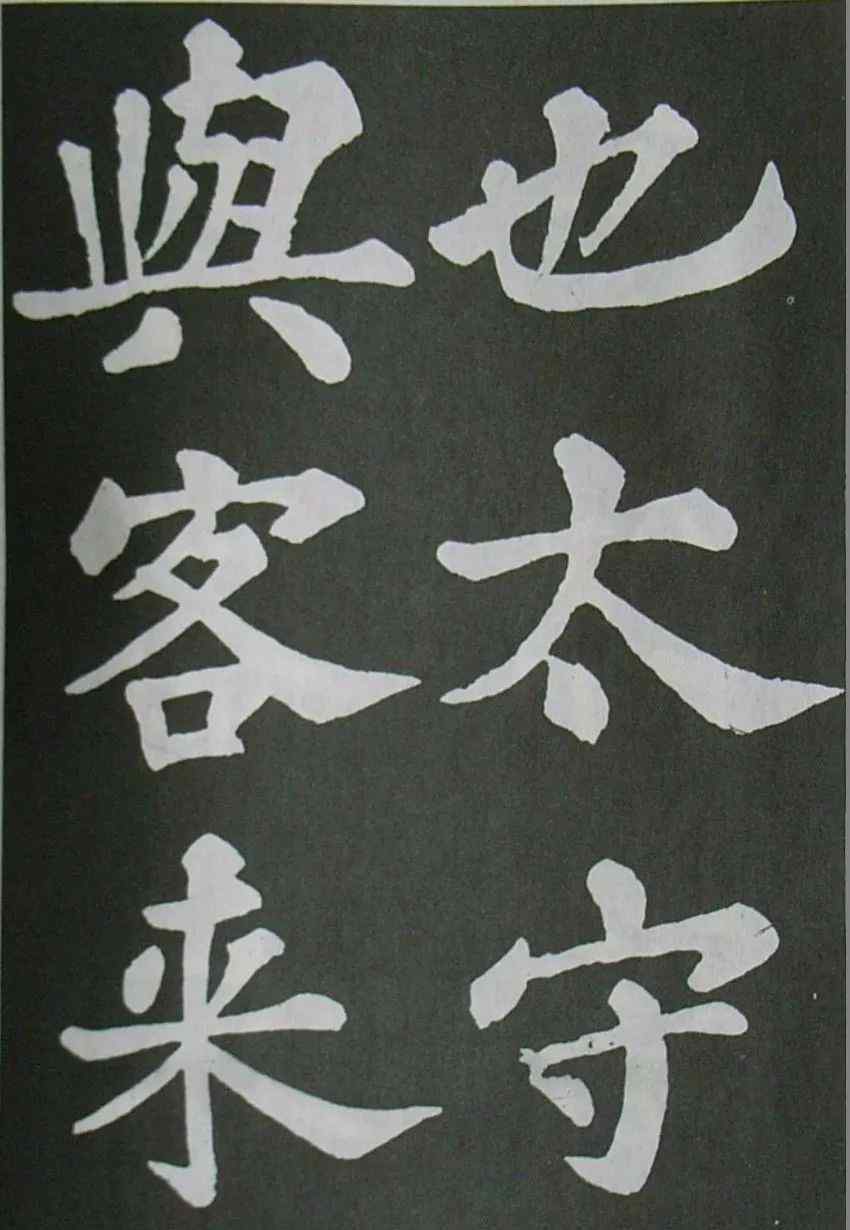 也太守
與客来